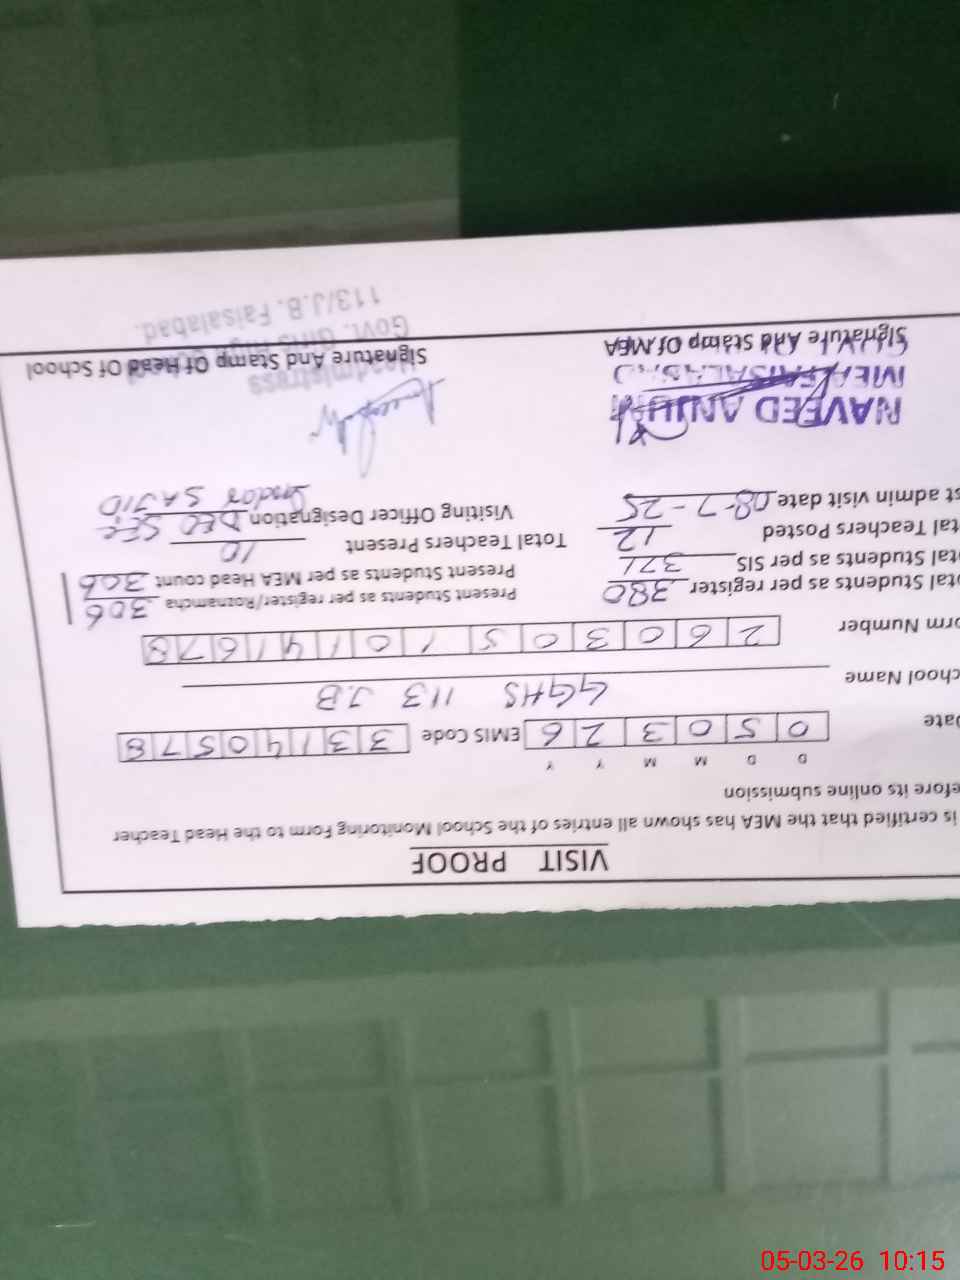 VISIT PROOF
is certified that the MEA has shown all entries of the School Monitoring Form to the Head Teacher
efore its online submission
D D M M Y Y
Date 0 5 0 3 2 6 EMIS Code 3 3 1 4 0 5 7 8
chool Name GGHS 113 J.B
orm Number 2 6 0 3 0 5 1 0 1 4 1 6 7 8
otal Students as per register 380 Present Students as per register/Roznamcha 306
otal Students as per SIS 371 Present Students as per MEA Head count 306
tal Teachers Posted 12 Total Teachers Present 10
st admin visit date 08-7-25 Visiting Officer Designation DEO SEF
SAJID
NAVEED ANJUM
MEA FAISALABAD
Signature And Stamp Of MEA Signature And Stamp Of Head Of School
Headmistress
Govt. Girls High
113/J.B. Faisalabad.
05-03-26 10:15